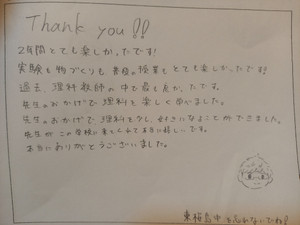 Thank you!!
2年間とても楽しかったです!
実験も物づくりも普段の授業もとても楽しかったです!
過去、理科教師の中で最も良かったです。
先生のおかげで理科を楽しく学べました。
先生のおかげで理科を少し好きになることができました。
先生がこの学校に来てくれて本当に嬉しいです。
本当にありがとうございました。
東桜島中を忘れないでね!